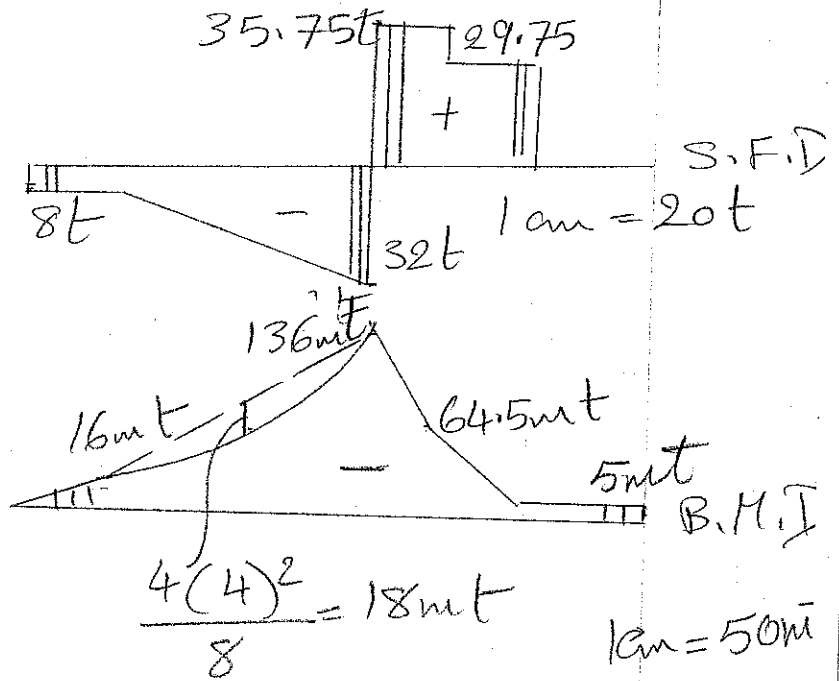 35.75t 29.75
+
S.F.D
8t
−
1cm = 20t
32t
136mt
16mt
64.5mt
−
5mt
B.M.I
4(4)²/8 = 18mt
1cm = 50m